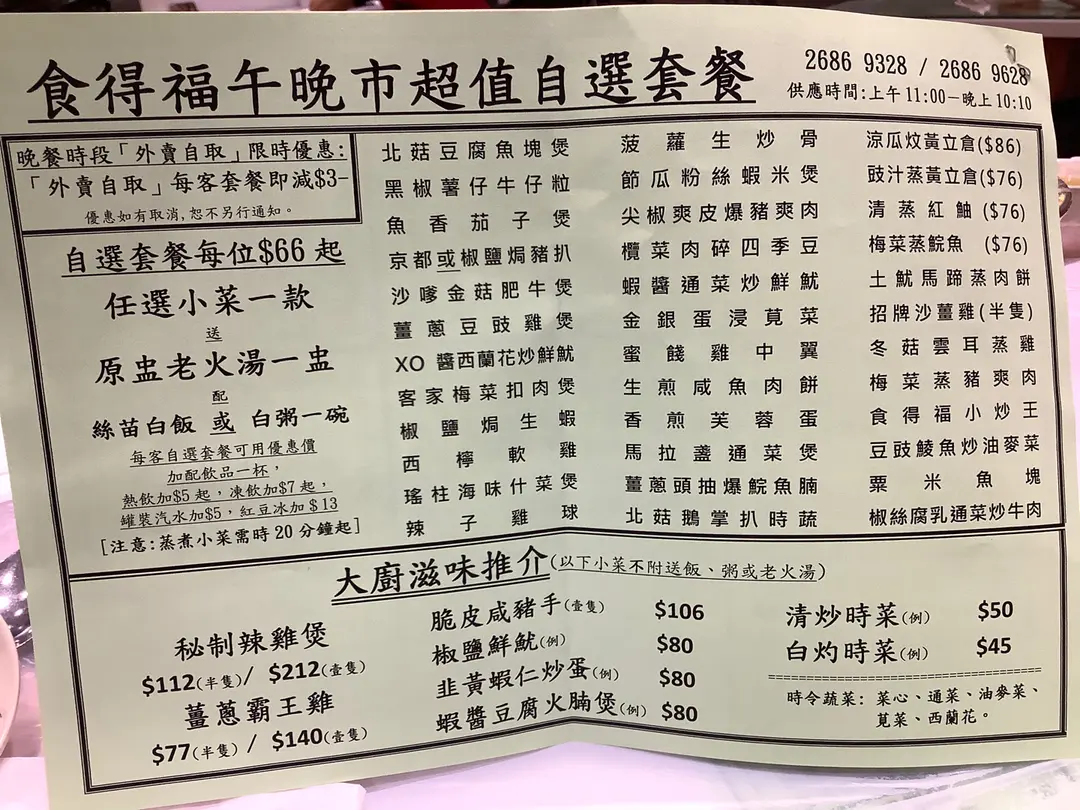 食得福午晚市超值自選套餐
2686 9328 / 2686 9628
供應時間:上午11:00－晚上10:10
晚餐時段「外賣自取」限時優惠:
「外賣自取」每客套餐即減$3-
優惠如有取消,恕不另行通知。
自選套餐每位$66起
任選小菜一款
送
原盅老火湯一盅
配
絲苗白飯 或 白粥一碗
每客自選套餐可用優惠價
加配飲品一杯，
熱飲加$5起，凍飲加$7起，
罐裝汽水加$5，紅豆冰加$13
[注意:蒸煮小菜需時20分鐘起]
北菇豆腐魚塊煲
黑椒薯仔牛仔粒
魚香茄子煲
京都或椒鹽焗豬扒
沙嗲金菇肥牛煲
薑蔥豆豉雞煲
XO醬西蘭花炒鮮魷
客家梅菜扣肉煲
椒鹽焗生蝦
西檸軟雞
瑤柱海味什菜煲
辣子雞球
菠蘿生炒骨
節瓜粉絲蝦米煲
尖椒爽皮爆豬爽肉
欖菜肉碎四季豆
蝦醬通菜炒鮮魷
金銀蛋浸莧菜
蜜餞雞中翼
生煎咸魚肉餅
香煎芙蓉蛋
馬拉盞通菜煲
薑蔥頭抽爆鯇魚腩
北菇鵝掌扒時蔬
涼瓜炆黃立倉($86)
豉汁蒸黃立倉($76)
清蒸紅鮋($76)
梅菜蒸鯇魚 ($76)
土魷馬蹄蒸肉餅
招牌沙薑雞(半隻)
冬菇雲耳蒸雞
梅菜蒸豬爽肉
食得福小炒王
豆豉鯪魚炒油麥菜
粟米魚塊
椒絲腐乳通菜炒牛肉
大廚滋味推介(以下小菜不附送飯、粥或老火湯)
秘制辣雞煲
$112(半隻)/ $212(壹隻)
薑蔥霸王雞
$77(半隻) / $140(壹隻)
脆皮咸豬手(壹隻) $106
椒鹽鮮魷(例) $80
韭黃蝦仁炒蛋(例) $80
蝦醬豆腐火腩煲(例) $80
清炒時菜(例) $50
白灼時菜(例) $45
時令蔬菜: 菜心、通菜、油麥菜、
莧菜、西蘭花。